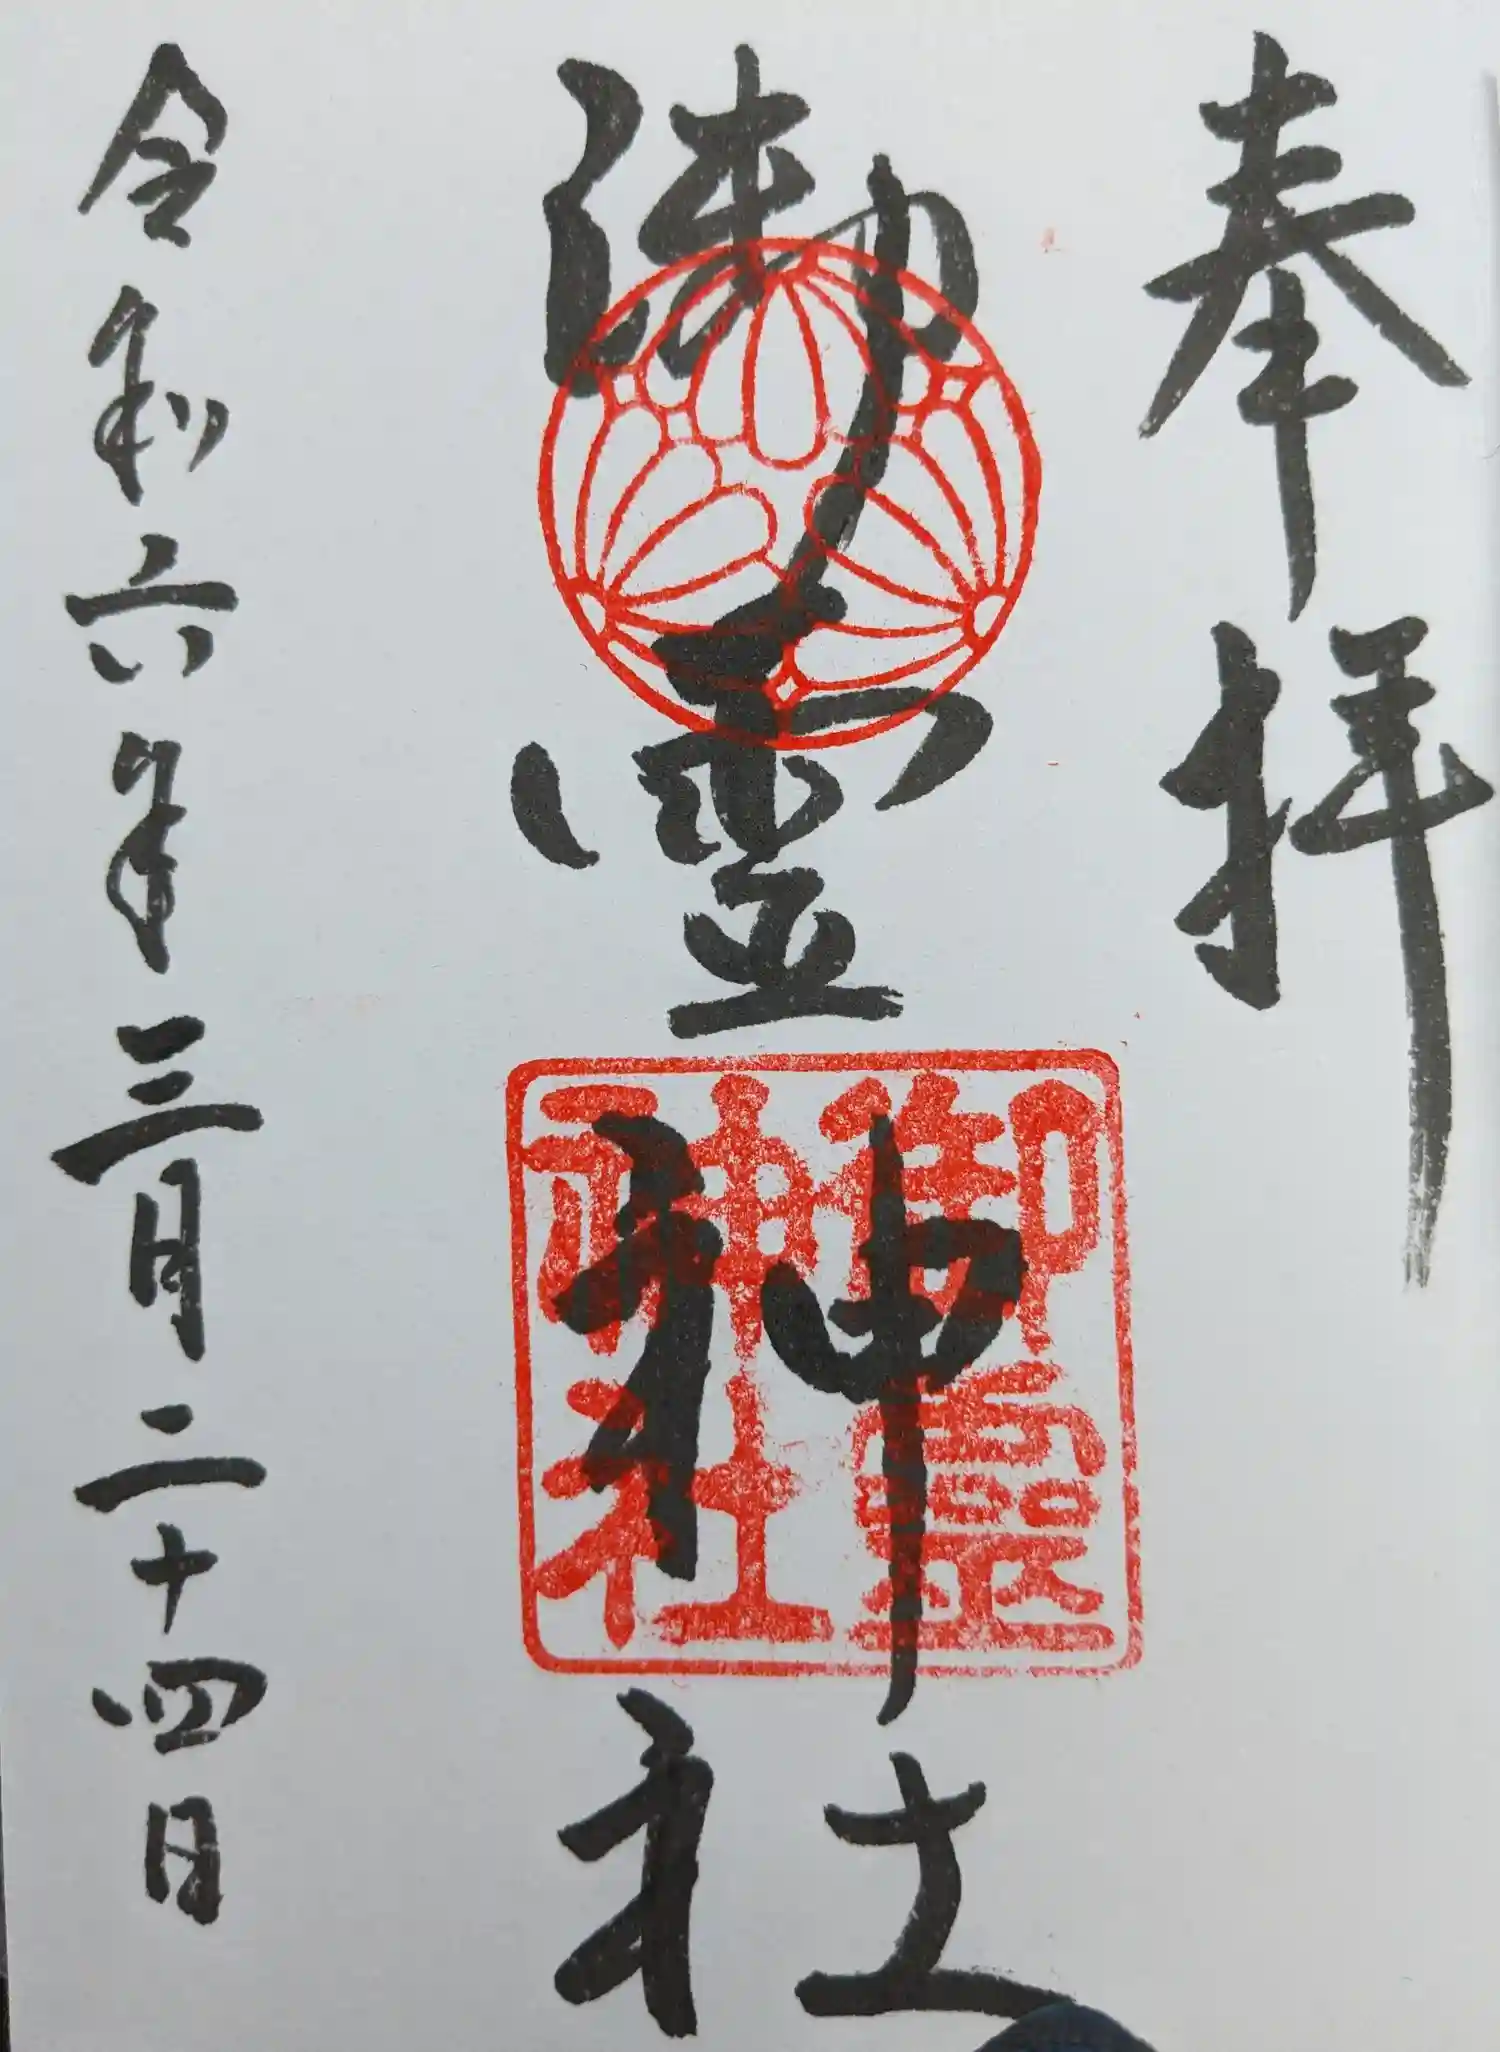 奉拝
御霊神社
御霊
神社
令和六年三月二十四日